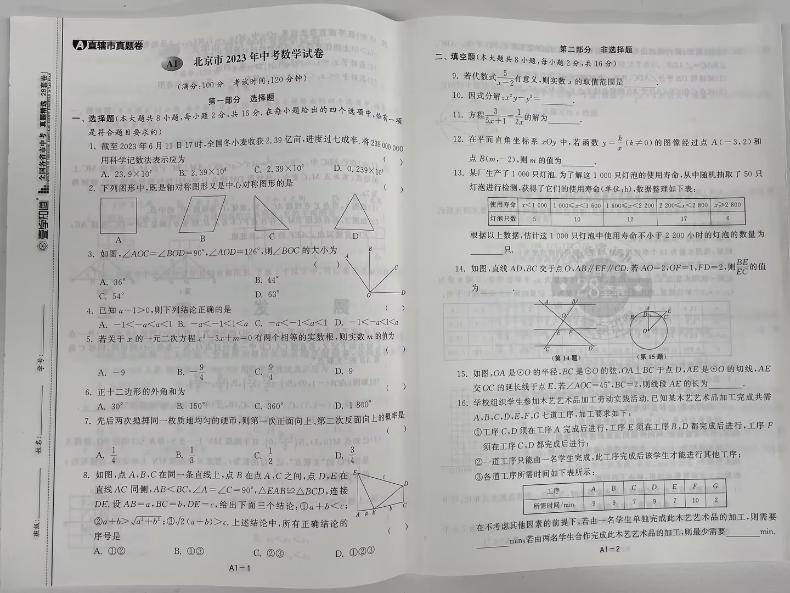 A 直辖市真题卷
A1 北京市 2023 年中考数学试卷
(满分:100 分 考试时间:120 分钟)
第一部分 选择题
一、选择题(本大题共 8 小题,每小题 2 分,共 16 分.在每小题给出的四个选项中,恰有一项
是符合题目要求的)
1. 截至 2023 年 6 月 11 日 17 时,全国冬小麦收获 2.39 亿亩,进度过七成半,将 239 000 000
用科学记数法表示应为 ( )
A. 23.9×10⁷ B. 2.39×10⁸ C. 2.39×10⁹ D. 0.239×10⁹
2. 下列图形中,既是轴对称图形又是中心对称图形的是 ( )
A B C D
3. 如图,∠AOC=∠BOD=90°,∠AOD=126°,则∠BOC 的大小为
( )
A. 36° B. 44°
C. 54° D. 63°
4. 已知 a-1>0,则下列结论正确的是 ( )
A. -1<-a<a<1 B. -a<-1<1<a C. -a<-1<a<1 D. -1<-a<1<a
5. 若关于 x 的一元二次方程 x²-3x+m=0 有两个相等的实数根,则实数 m 的值为
( )
A. -9 B. -9/4 C. 9/4 D. 9
6. 正十二边形的外角和为 ( )
A. 30° B. 150° C. 360° D. 1 800°
7. 先后两次抛掷同一枚质地均匀的硬币,则第一次正面向上、第二次反面向上的概率是
( )
A. 1/4 B. 1/3 C. 1/2 D. 3/4
8. 如图,点 A,B,C 在同一条直线上,点 B 在点 A,C 之间,点 D,E 在
直线 AC 同侧,AB<BC,∠A=∠C=90°,△EAB≌△BCD,连接
DE.设 AB=a,BC=b,DE=c,给出下面三个结论:①a+b<c;
②a+b>√(a²+b²);③√2(a+b)>c.上述结论中,所有正确结论的
序号是 ( )
A. ①② B. ①③ C. ②③ D. ①②③
A1—1
第二部分 非选择题
二、填空题(本大题共 8 小题,每小题 2 分,共 16 分)
9. 若代数式 5/(x-2) 有意义,则实数 x 的取值范围是______.
10. 因式分解:x²y-y³=______.
11. 方程 3/(5x+1)=1/(2x) 的解为______.
12. 在平面直角坐标系 xOy 中,若函数 y=k/x(k≠0)的图像经过点 A(-3,2)和
点 B(m,-2),则 m 的值为______.
13. 某厂生产了 1 000 只灯泡.为了解这 1 000 只灯泡的使用寿命,从中随机抽取了 50 只
灯泡进行检测,获得了它们的使用寿命(单位:h),数据整理如下表:
使用寿命 x<1 000 1 000≤x<1 600 1 600≤x<2 200 2 200≤x<2 800 x≥2 800
灯泡只数 5 10 12 17 6
根据以上数据,估计这 1 000 只灯泡中使用寿命不小于 2 200 小时的灯泡的数量为
______只.
14. 如图,直线 AD,BC 交于点 O,AB∥EF∥CD.若 AO=2,OF=1,FD=2,则 BE/EC 的值
为______.
(第 14 题) (第 15 题)
15. 如图,OA 是⊙O 的半径,BC 是⊙O 的弦,OA⊥BC 于点 D,AE 是⊙O 的切线,AE
交 OC 的延长线于点 E.若∠AOC=45°,BC=2,则线段 AE 的长为______.
16. 学校组织学生参加木艺艺术品加工劳动实践活动.已知某木艺艺术品加工完成共需
A,B,C,D,E,F,G 七道工序,加工要求如下:
①工序 C,D 须在工序 A 完成后进行,工序 E 须在工序 B,D 都完成后进行,工序 F
须在工序 C,D 都完成后进行;
②一道工序只能由一名学生完成,此工序完成后该学生才能进行其他工序;
③各道工序所需时间如下表所示:
工序 A B C D E F G
所需时间/min 9 9 7 9 7 10 2
在不考虑其他因素的前提下,若由一名学生单独完成此木艺艺术品的加工,则需要
______min;若由两名学生合作完成此木艺艺术品的加工,则最少需要______min.
A1—2
全国各省市中考 真题精选
学号:
姓名:
班级: